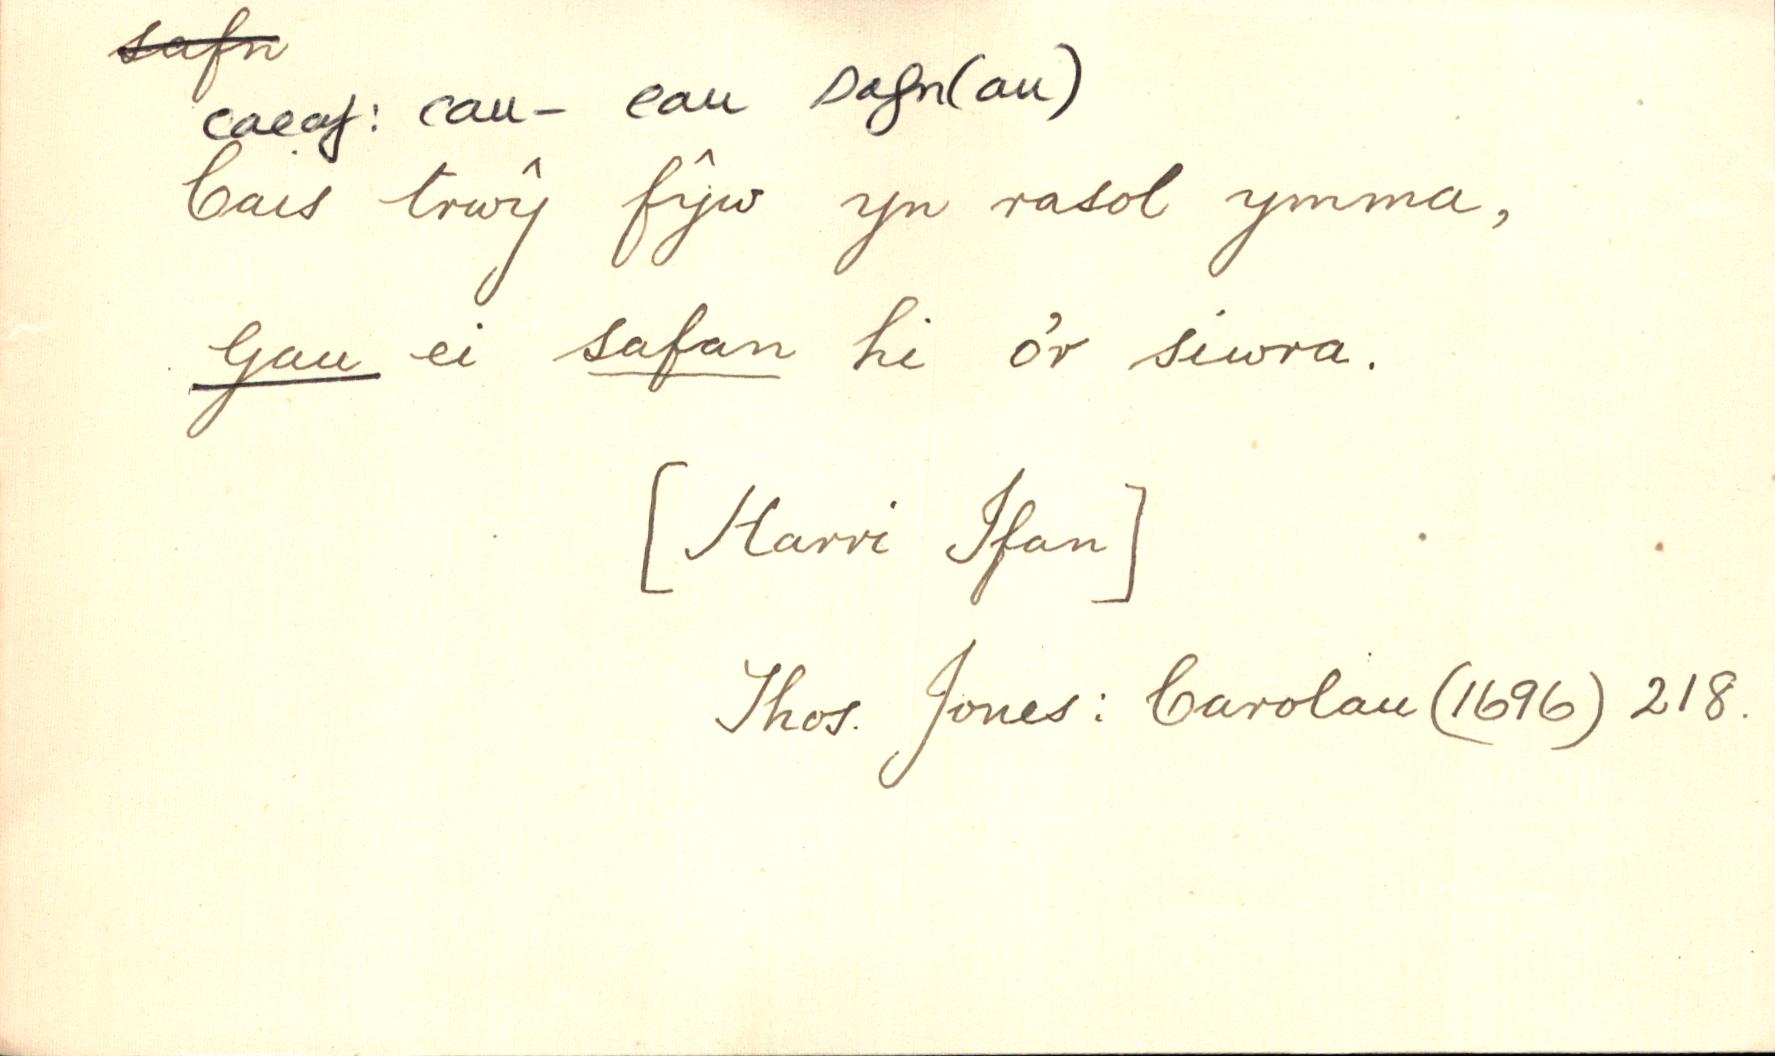 safn
caeaf: cau – cau safn(au)
Cais trwŷ fŷw yn rasol ymma,
Gau ei safan hi o'r siwra.
[Harri Ifan]
Thos. Jones: Carolau (1696) 218.